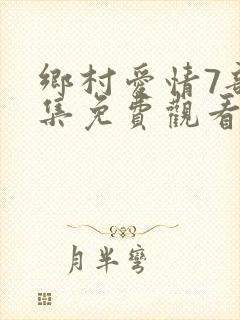 鄉村愛情7
集免費觀看
月半彎